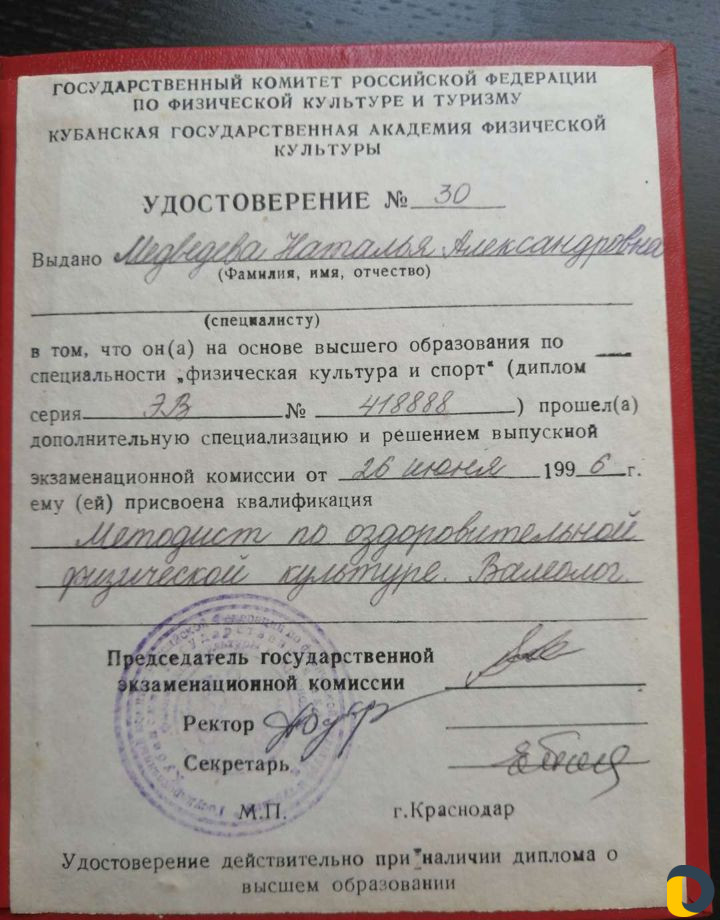 ГОСУДАРСТВЕННЫЙ КОМИТЕТ РОССИЙСКОЙ ФЕДЕРАЦИИ
ПО ФИЗИЧЕСКОЙ КУЛЬТУРЕ И ТУРИЗМУ
КУБАНСКАЯ ГОСУДАРСТВЕННАЯ АКАДЕМИЯ ФИЗИЧЕСКОЙ
КУЛЬТУРЫ
УДОСТОВЕРЕНИЕ № 30
Выдано Медведева Наталья Александровна
(Фамилия, имя, отчество)
(специалисту)
в том, что он(а) на основе высшего образования по
специальности „физическая культура и спорт“ (диплом
серия ЭВ № 418888) прошел(а)
дополнительную специализацию и решением выпускной
экзаменационной комиссии от 26 июня 1996 г.
ему (ей) присвоена квалификация
Методист по оздоровительной
физической культуре. Валеолог.
Председатель государственной
экзаменационной комиссии
Ректор
Секретарь
М.П. г.Краснодар
Удостоверение действительно при наличии диплома о
высшем образовании